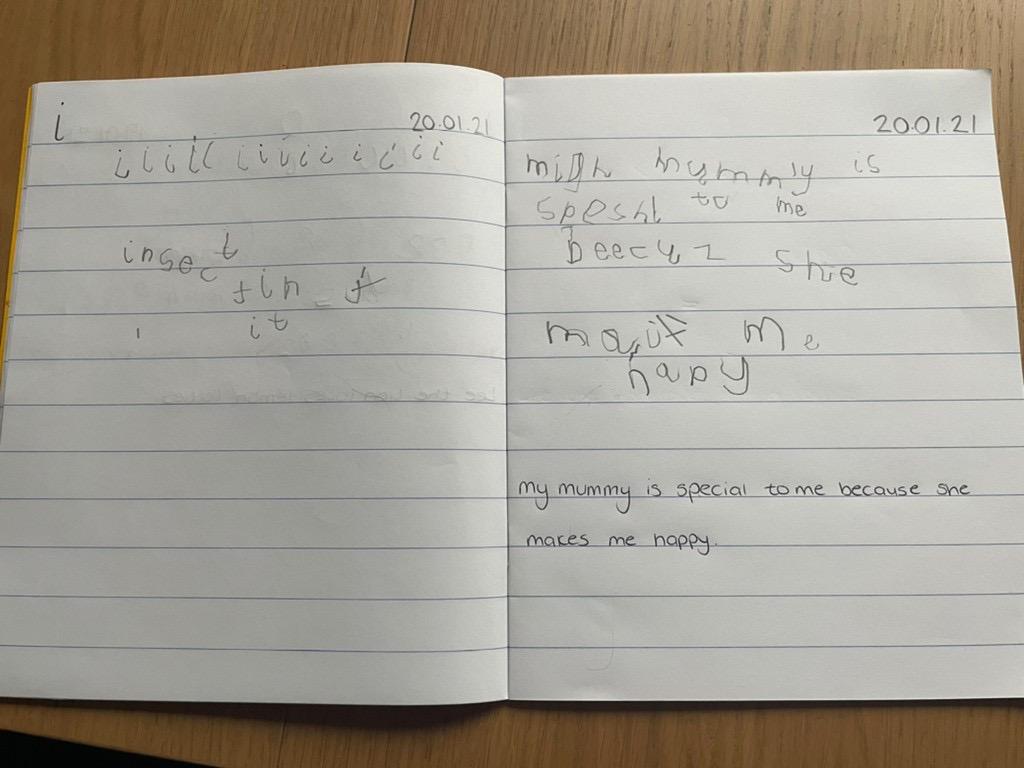 i
20.01.21
i i i i i i i i i i i i i i
insect
tin
it
20.01.21
migh mummy is
speshl to me
beecuz she
me
hapy
my mummy is special to me because she
makes me happy.